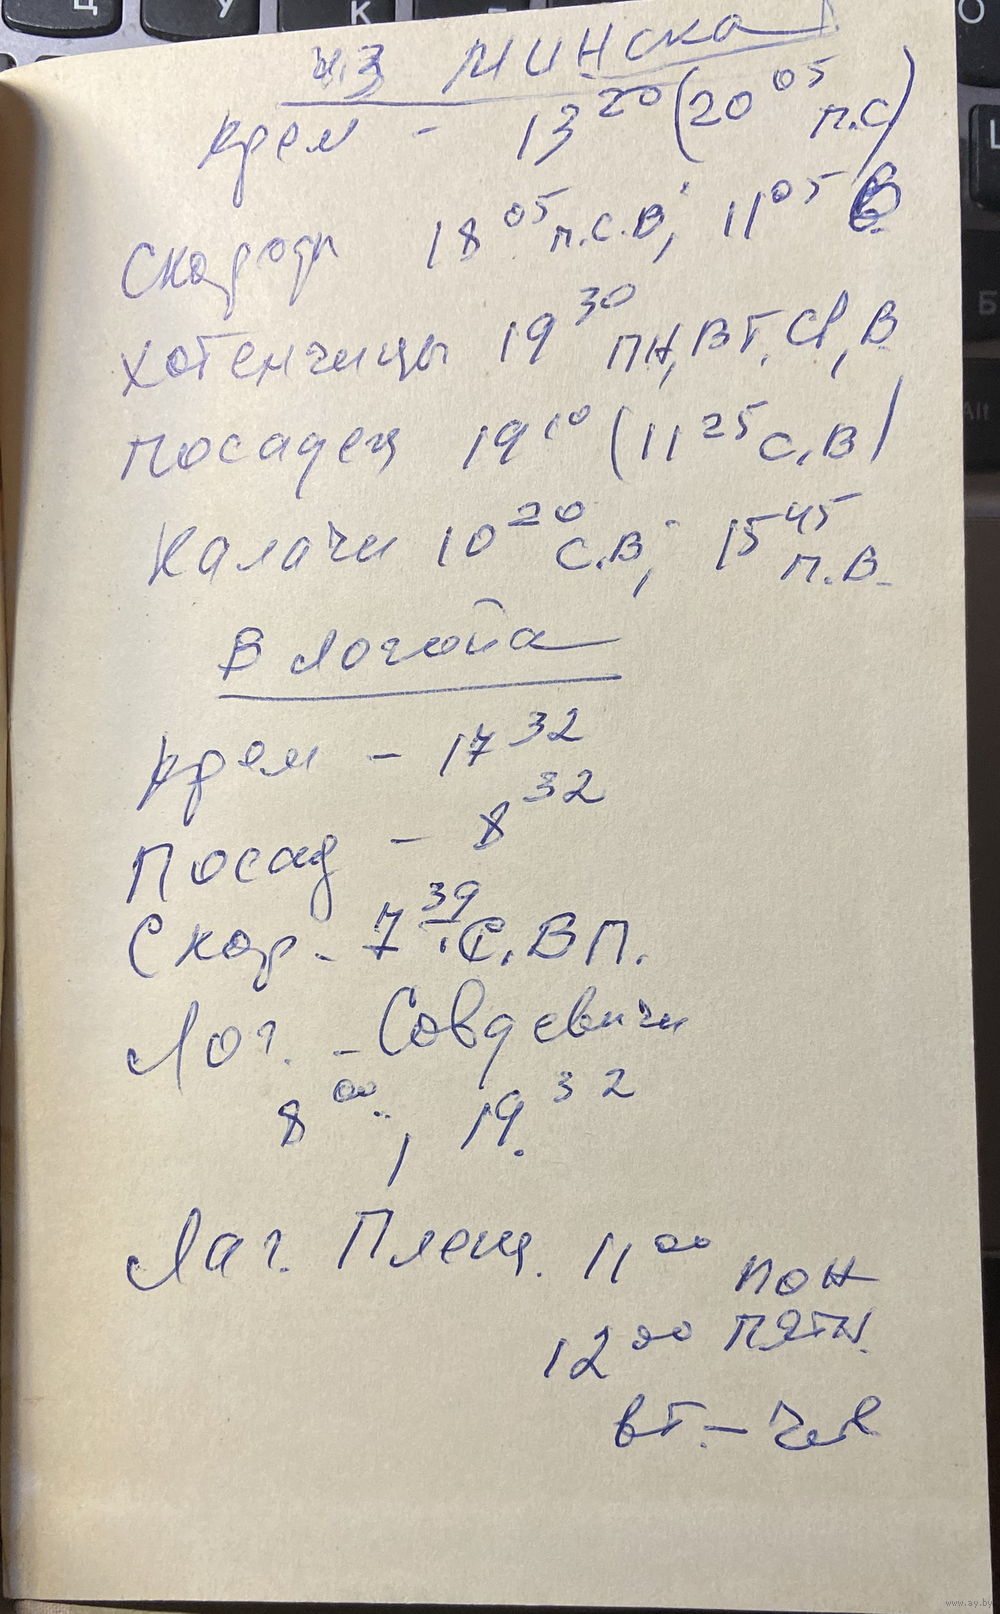 из Минска
Крем - 13 20 (20 05 п.С)
Скороди 18 05 п.С.В; 11 05 В
Хотенчицы 19 30 ПН, ВТ, СР, В
Посадец 19 10 (11 25 С,В)
Калачи 10 20 С.В; 15 45 П.В.
в Логойск
Крем - 17 32
Посад - 8 32
Скор. 7 39 С.ВП.
Лог. - Совдевичи
8 00, 19 32
Лаг. Плещ. 11 00 ПОН
12 00 ПЯТН.
ВТ. - Чет
www.ay.by